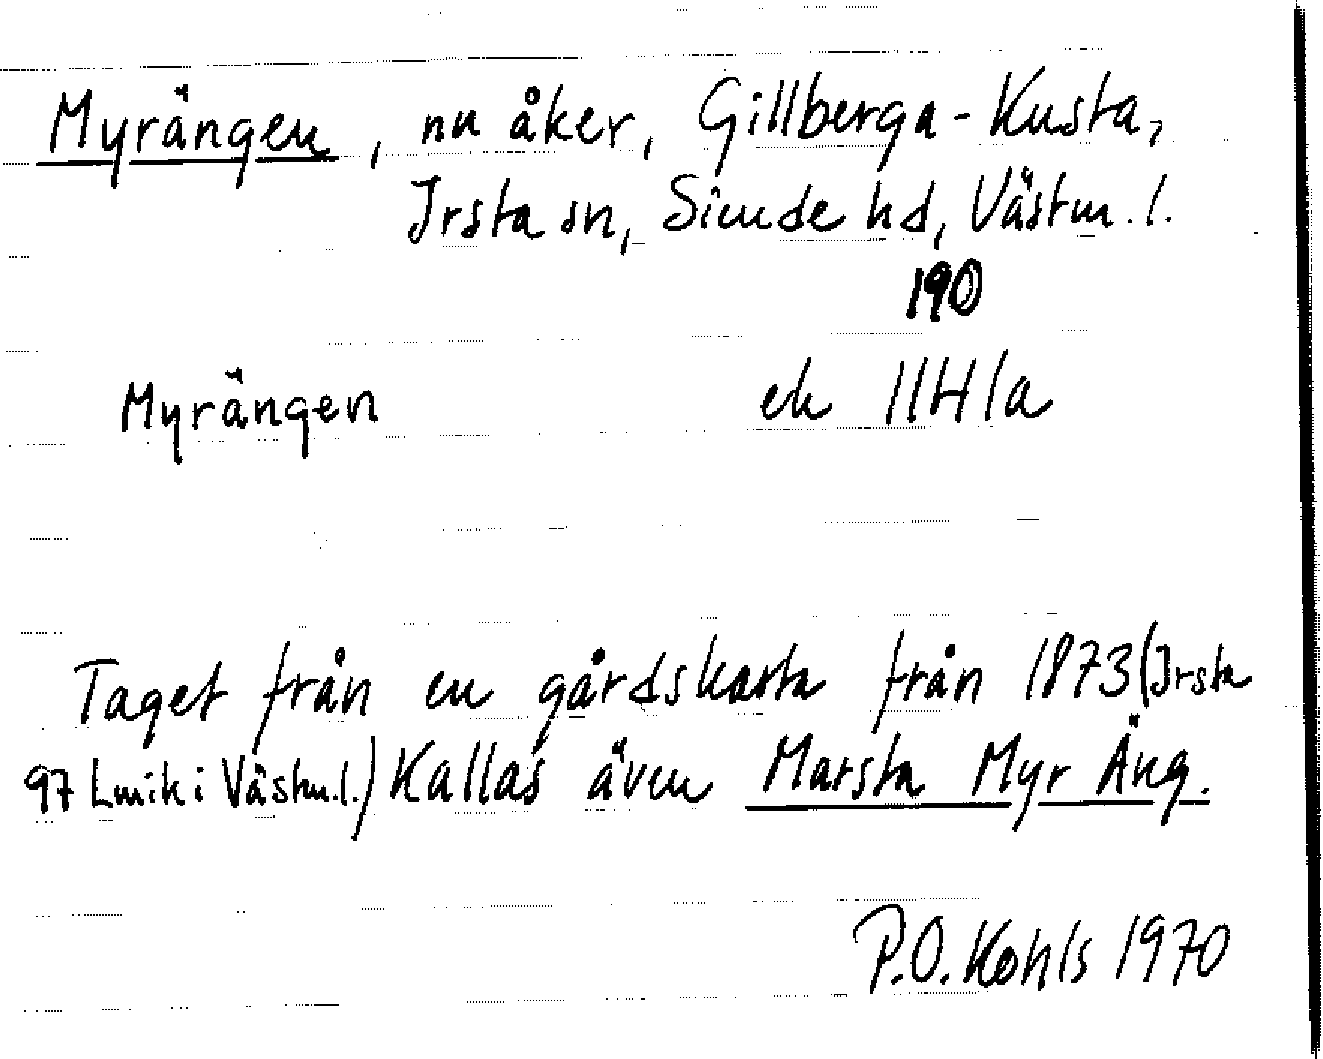 Myrängen, nu åker, Gillberga-Kusta,
Irsta sn, Siende hd, Västm.l.
190
Myrängen ek 11H1a
Taget från en gårdskarta från 1873 (Irsta
97 Lmik i Västm.l.) Kallas även Marsta Myr Äng.
P.O. Kohls 1970